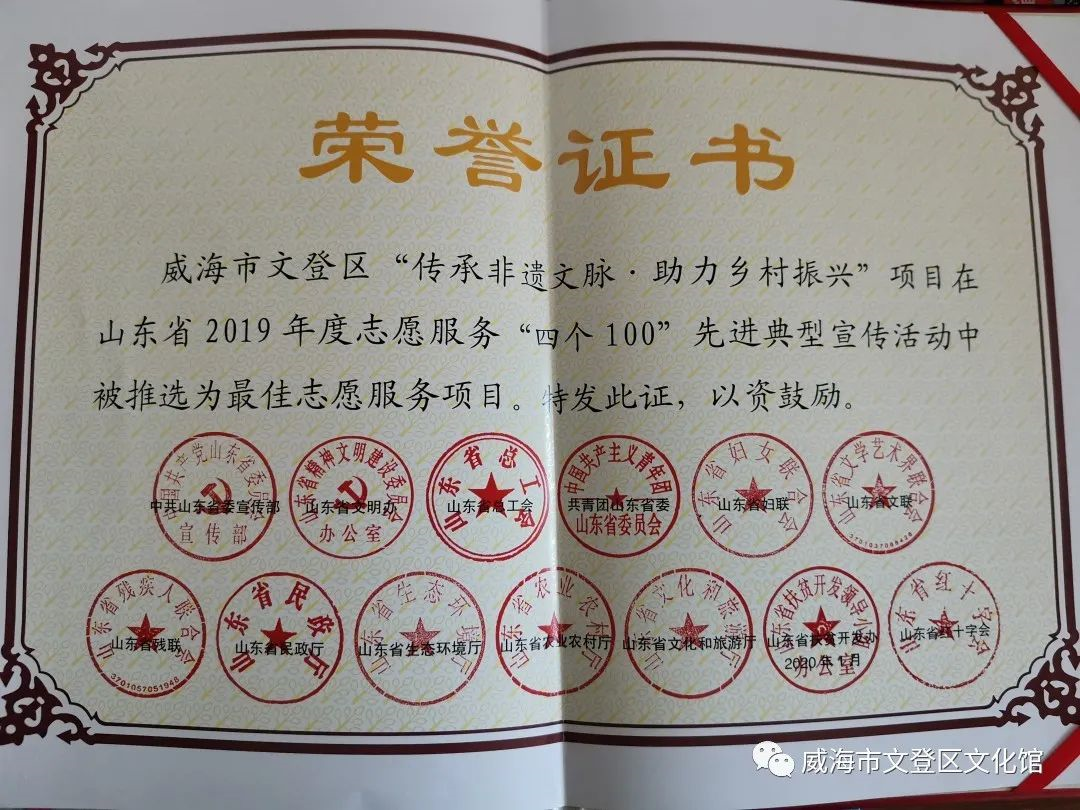 荣誉证书
威海市文登区“传承非遗文脉·助力乡村振兴”项目在
山东省2019年度志愿服务“四个100”先进典型宣传活动中
被推选为最佳志愿服务项目。特发此证，以资鼓励。
中国共产党山东省委员会
宣传部
中共山东省委宣传部
山东省精神文明建设委员会
办公室
山东省文明办
山东省总工会
山东省总工会
中国共产主义青年团
山东省委员会
共青团山东省委
山东省妇女联合会
山东省妇联
山东省文学艺术界联合会
山东省文联
山东省残疾人联合会
3701057051948
山东省残联
山东省民政厅
山东省民政厅
山东省生态环境厅
山东省生态环境厅
山东省农业农村厅
山东省农业农村厅
山东省文化和旅游厅
山东省文化和旅游厅
山东省扶贫开发领导小组
办公室
山东省扶贫开发办
2020年1月
山东省红十字会
山东省红十字会
威海市文登区文化馆